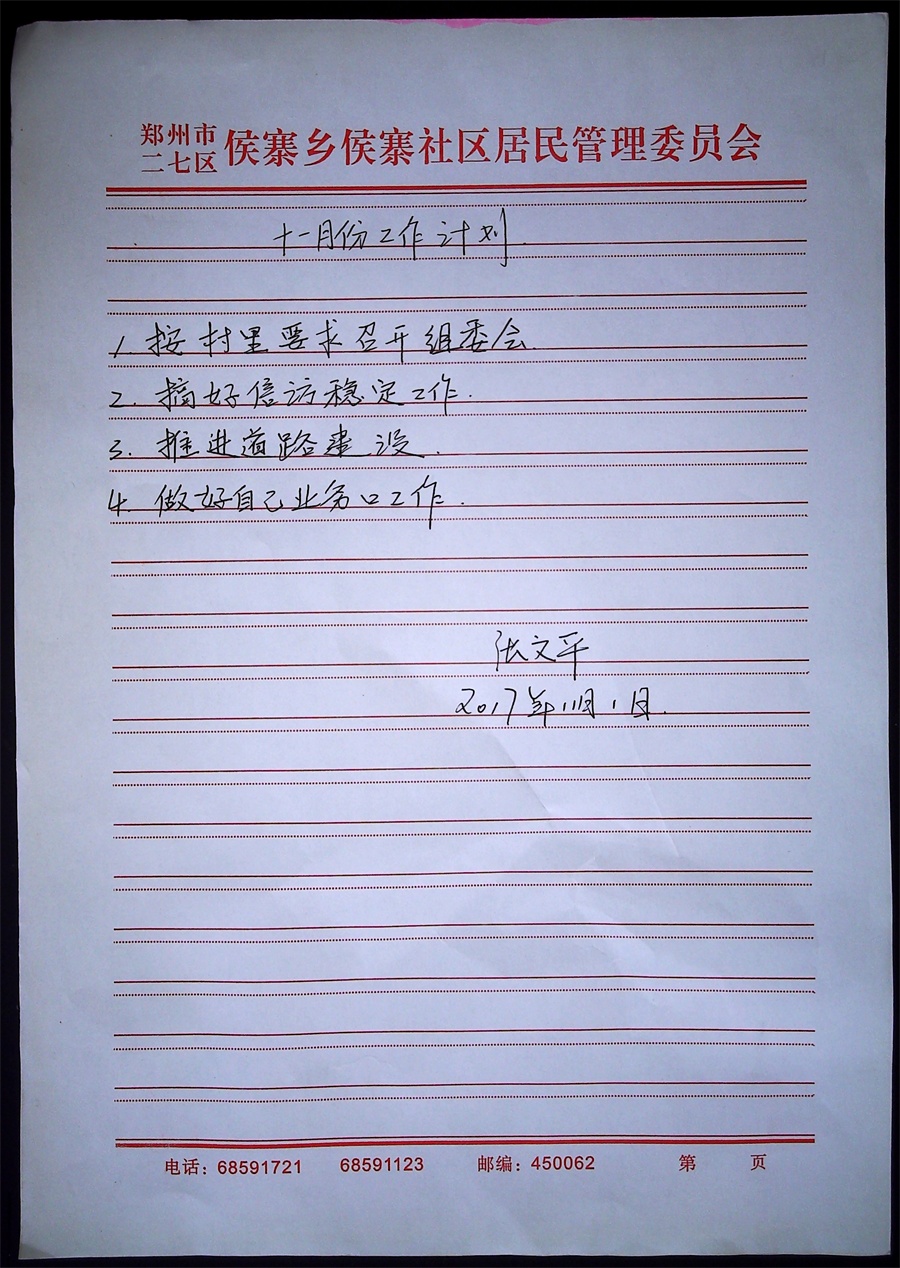 郑州市
二七区 侯寨乡侯寨社区居民管理委员会
十一月份工作计划.
1. 按村里要求召开组委会.
2. 搞好信访稳定工作.
3. 推进道路建设.
4. 做好自己业务口工作.
张文平
2017年11月1日.
电话：68591721 68591123 邮编：450062 第 页